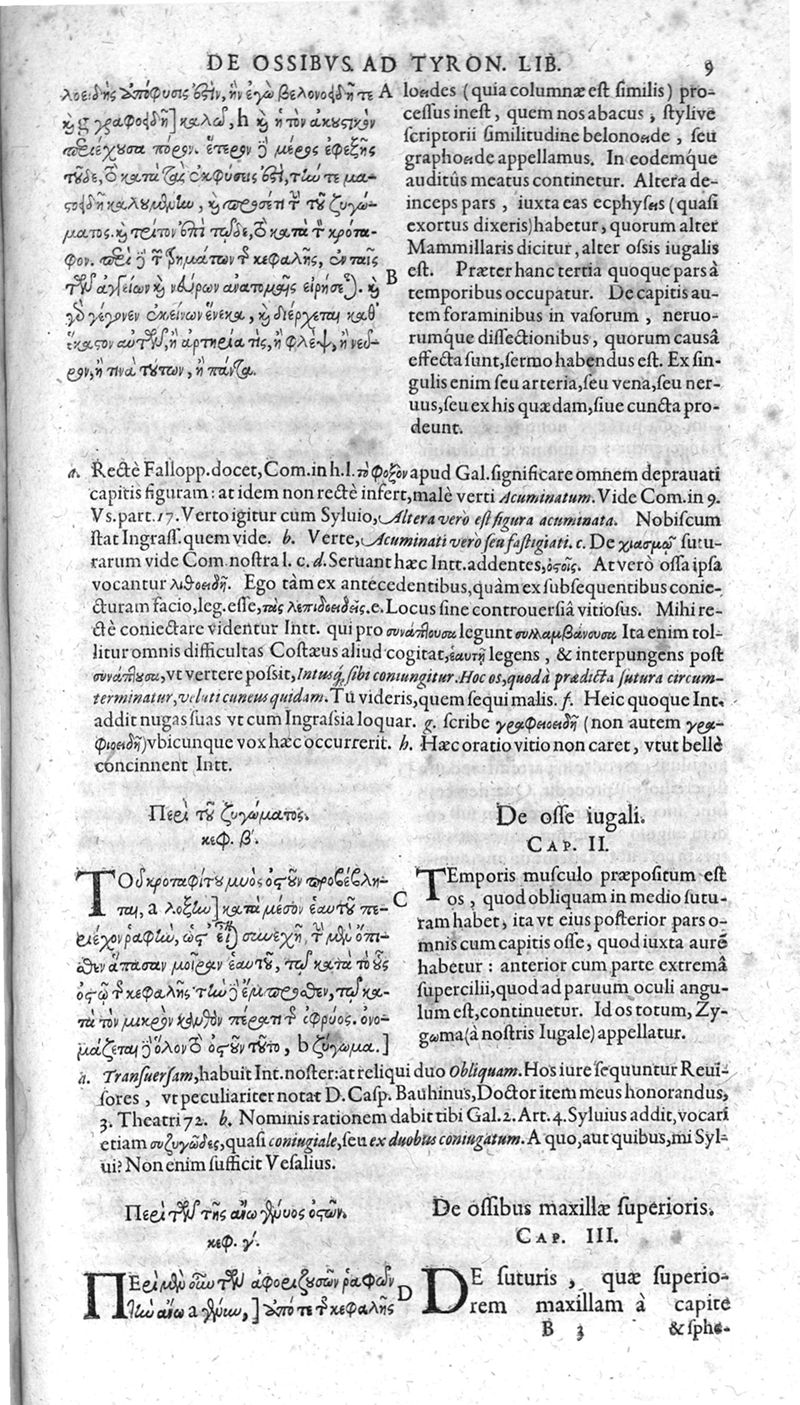 DE OSSIBVS. AD TYRON. LIB. 9
λοειδὴς ἀπόφυσις ὅτιν, ἣν ἐγὼ βελονοειδῆ τε
καὶ g γραφοειδῆ] καλῶ, h καὶ ἡ τὸν ἀκουστικὸν
περιέχουσα πόρον. ἕτερον δὲ μέρος ἐφεξῆς
τοῦδε, τὸ κατὰ τὰς ἐκφύσεις ἐστὶ, τήν τε μα-
στοειδῆ καλουμένην, καὶ πρὸς ἔτι τοῦ ζυγώ-
ματος. καὶ τρίτον ἐπὶ τῷδε, τὸ κατὰ τὸν κρότα-
φον. περὶ δὲ τῶν τρημάτων τῆς κεφαλῆς, ἐν ταῖς
τῶν ἀγγείων καὶ νεύρων ἀνατομαῖς εἰρήσεται. καὶ
γὰρ γέγονεν ἐκείνων ἕνεκα, καὶ διέρχεται καθ'
ἕκαστον αὐτῶν, ἢ ἀρτηρία τις, ἢ φλὲψ, ἢ νεῦ-
ρον, ἢ τινὰ τούτων, ἢ πάντα.
A
B
loeides (quia columnæ est similis) pro-
cessus inest, quem nos abacus, stylive
scriptorii similitudine belonoeide, seu
graphoeide appellamus. In eodemque
auditûs meatus continetur. Altera de-
inceps pars, iuxta eas ecphyseis (quasi
exortus dixeris) habetur, quorum alter
Mammillaris dicitur, alter ossis iugalis
est. Præter hanc tertia quoque pars à
temporibus occupatur. De capitis au-
tem foraminibus in vasorum, neruo-
rumque dissectionibus, quorum causâ
effecta sunt, sermo habendus est. Ex sin-
gulis enim seu arteria, seu vena, seu ner-
uus, seu ex his quædam, siue cuncta pro-
deunt.
a. Rectè Fallopp. docet, Com. in h. l. τὸ φοξὸν apud Gal. significare omnem deprauati
capitis figuram: at idem non rectè infert, malè verti Acuminatum. Vide Com. in 9.
Vs. part. 17. Verto igitur cum Syluio, Altera vero est figura acuminata. Nobiscum
stat Ingrass. quem vide. b. Verte, Acuminati vero seu fastigiati. c. De χιασμῷ sutu-
rarum vide Com. nostra l. c. d. Seruant hæc Intt. addentes, ὀστοῖς. At verò ossa ipsa
vocantur λιθοειδῆ. Ego tàm ex antecedentibus, quàm ex subsequentibus conie-
cturam facio, leg. esse, τὰς λεπιδοειδεῖς. e. Locus sine controuersiâ vitiosus. Mihi re-
ctè coniectare videntur Intt. qui pro συνάπτουσα legunt συλλαμβάνουσα Ita enim tol-
litur omnis difficultas Costæus aliud cogitat, ἑαυτῇ legens, & interpungens post
συνάπτουσα, vt vertere possit, Intusq; sibi coniungitur. Hoc os, quod à prædicta sutura circum-
terminatur, veluti cuneus quidam. Tu videris, quem sequi malis. f. Heic quoque Int.
addit nugas suas vt cum Ingrassia loquar. g. scribe γραφειοειδῆ (non autem γρα-
φιοειδῆ) vbicunque vox hæc occurrerit. h. Hæc oratio vitio non caret, vtut bellè
concinnent Intt.
Περὶ τοῦ ζυγώματος.
κεφ. β'.
ΤΟ δὲ κροταφίτου μυὸς ὀστοῦν προβέβλη-
ται, a λοξὴν] κατὰ μέσον ἑαυτοῦ πε-
ριέχον ῥαφὴν, ὡς εἶναι συνεχῆ, τὴν μὲν ὄπι-
σθεν ἅπασαν μοῖραν ἑαυτοῦ, τῷ κατὰ τὸ οὖς
ὀστῷ τῆς κεφαλῆς· τὴν δὲ ἔμπροσθεν, τῷ κα-
τὰ τὸν μικρὸν κανθὸν πέρατι τῆς ὀφρύος. ὀνο-
μάζεται δὲ ὅλον τὸ ὀστοῦν τοῦτο, b ζύγωμα.]
C
De osse iugali.
CAP. II.
TEmporis musculo præpositum est
os, quod obliquam in medio sutu-
ram habet, ita vt eius posterior pars o-
mnis cum capitis osse, quod iuxta aurē
habetur: anterior cum parte extremâ
supercilii, quod ad paruum oculi angu-
lum est, continuetur. Id os totum, Zy-
gωma (à nostris Iugale) appellatur.
a. Transuersam, habuit Int. noster: at reliqui duo Obliquam. Hos iure sequuntur Reui-
sores, vt peculiariter notat D. Casp. Bauhinus, Doctor item meus honorandus,
3. Theatri 72. b. Nominis rationem dabit tibi Gal. 2. Art. 4. Syluius addit, vocari
etiam συζυγῶδες, quasi coniugiale, seu ex duobus coniugatum. A quo, aut quibus, mi Syl-
ui? Non enim sufficit Vesalius.
Περὶ τῶν τῆς ἄνω γένυος ὀστῶν.
κεφ. γ'.
ΠΕρὶ μὲν οὖν τῶν ἀφοριζουσῶν ῥαφῶν
τὴν ἄνω a γένυν,] ἀπό τε τῆς κεφαλῆς
D
De ossibus maxillæ superioris.
CAP. III.
DE suturis, quæ superio-
rem maxillam à capite
B 3 & sphe-